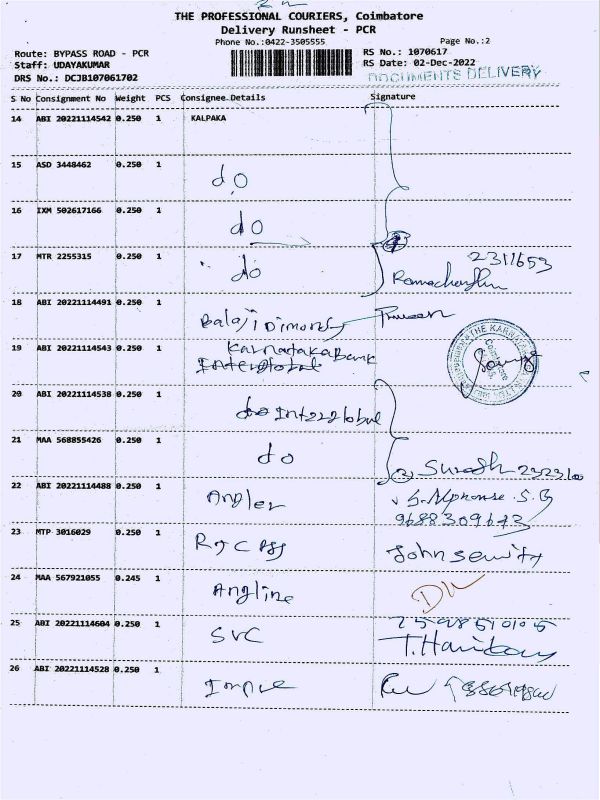 THE PROFESSIONAL COURIERS, Coimbatore
Delivery Runsheet - PCR
Phone No.:0422-3505555
Page No.:2
Route: BYPASS ROAD - PCR
RS No.: 1070617
Staff: UDAYAKUMAR
RS Date: 02-Dec-2022
DRS No.: DCJB107061702
DOCUMENTS DELIVERY
S No Consignment No Weight PCS Consignee Details Signature
14 ABI 20221114542 0.250 1 KALPAKA
15 ASD 3448462 0.250 1 do
16 IXM 502617166 0.250 1 do
17 MTR 2255315 0.250 1 do 2311653
18 ABI 20221114491 0.250 1 Balaji
19 ABI 20221114543 0.250 1 Karnataka Bank
20 ABI 20221114538 0.250 1 Interglobal
21 MAA 568855426 0.250 1 do Suresh
22 ABI 20221114488 0.250 1 Angler S. Alphonse. S. B
9688309643
23 MTP 3016029 0.250 1
24 MAA 567921055 0.245 1 Angline
25 ABI 20221114604 0.250 1 SVC
26 ABI 20221114528 0.250 1